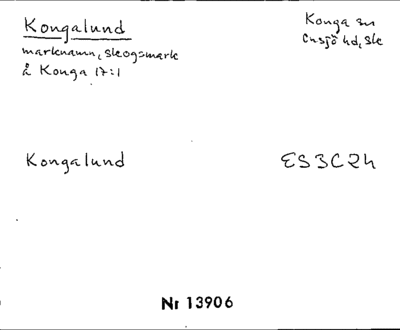 Kongalund
Konga sn
Onsjö hd, Sk
marknamn, skogsmark
å Konga 17:1
Kongalund
ES3C2h
Nr 13906